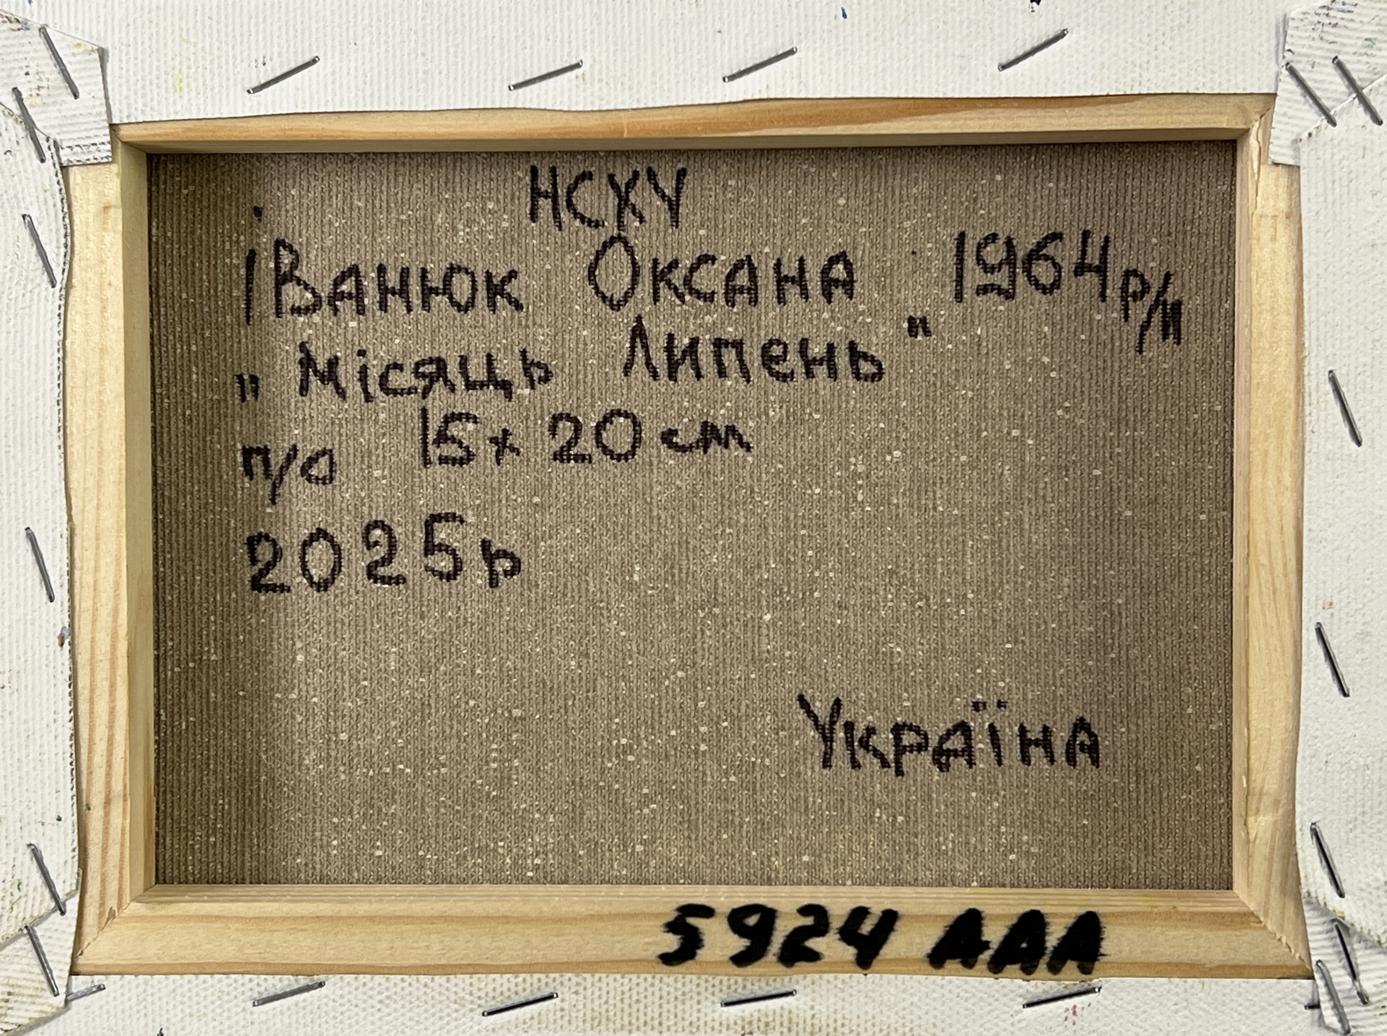 НСХУ
Іванюк Оксана 1964 р/н
„Місяць Липень"
п/о 15х20 см
2025р
Україна
5924 AAA